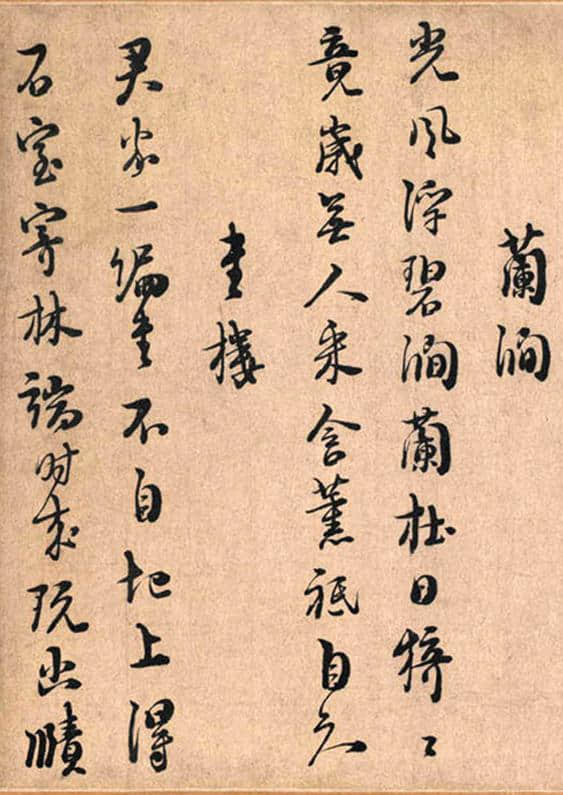 蘭澗
光風浮碧澗蘭杜日猗〻
竟歲無人采含薰祇自知
書樓
君家一編書不自圯上得
石室寄林端時來玩幽賾